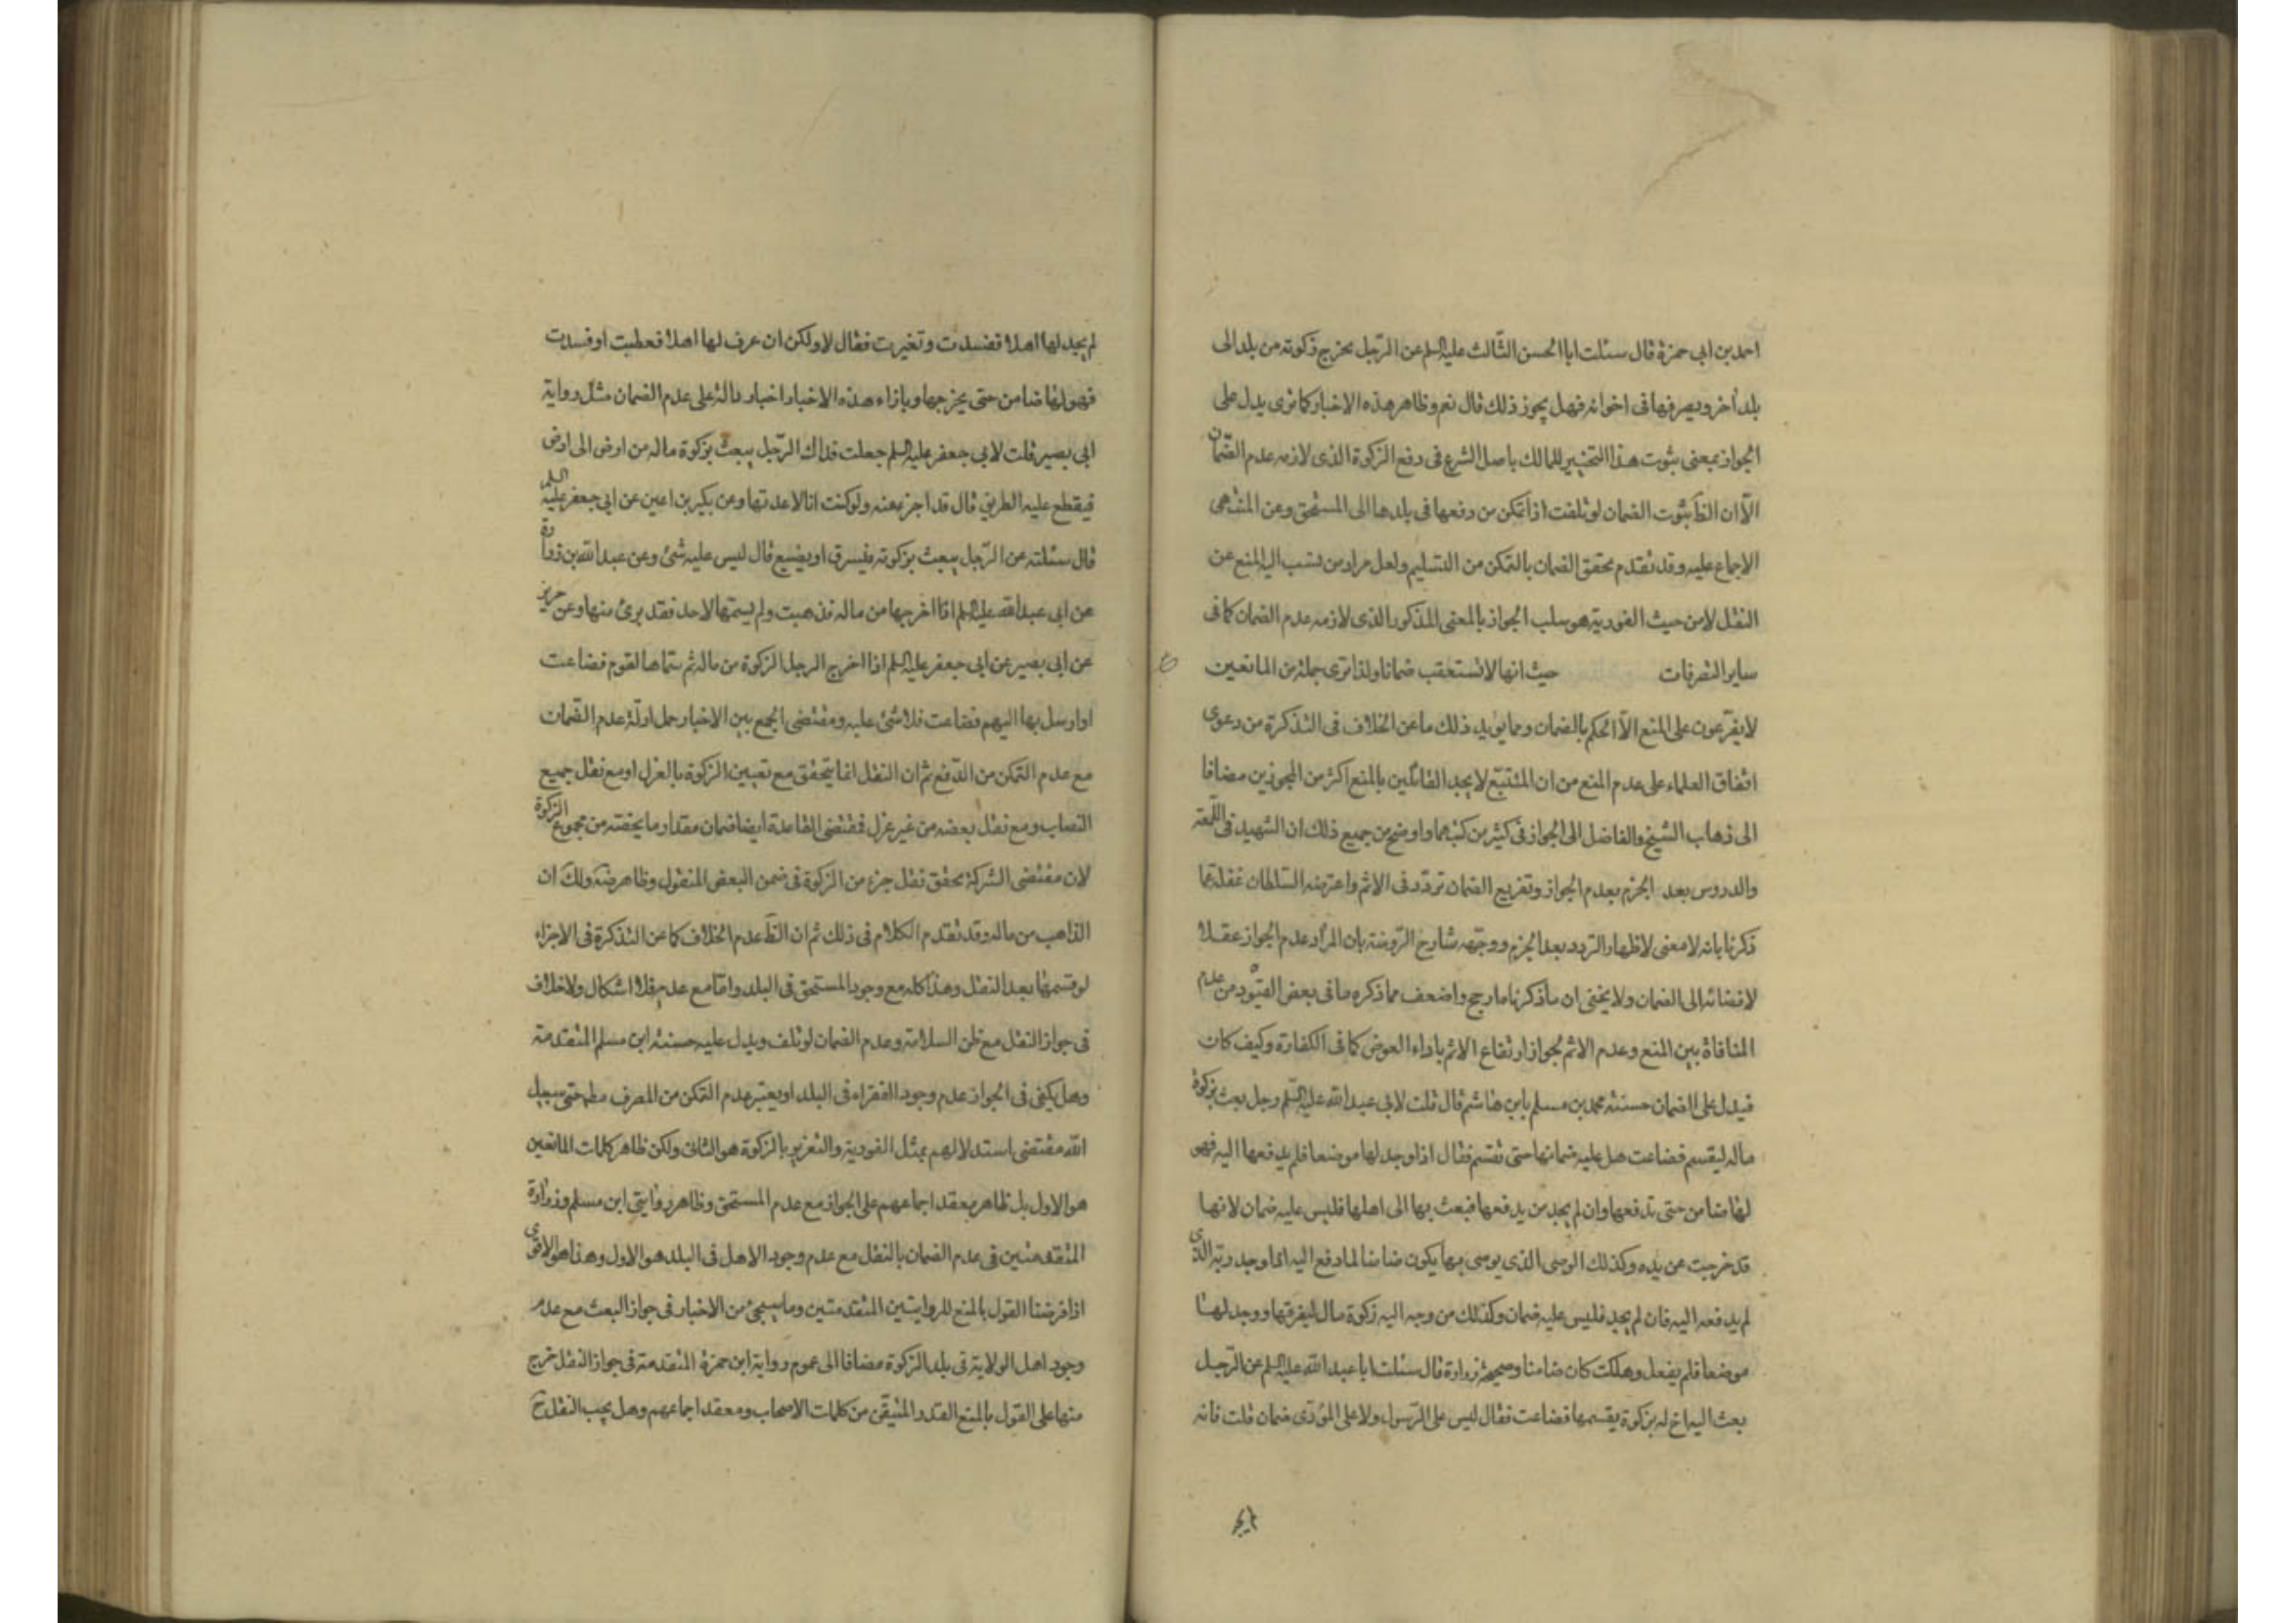 احمد بن ابى حمزة قال سئلت ابا الحسن الثالث عليه السلم عن الرّجل يخرج زكوته من بلد الى
بلد آخر ويصرفها فى اخوانه فهل يجوز ذلك قال نعم وظاهر هذه الاخبار كما ترى يدل على
الجواز بمعنى ثبوت هذا التخيير للمالك باصل الشرع فى دفع الزكوة الذى لازمه عدم الضّمان
الّا ان الظ ثبوت الضمان لو تلفت اذا تمكن من دفعها فى بلدها الى المستحق وعن المنتهى
الاجماع عليه وقد تقدم تحقق الضمان بالتمكن من التسليم ولعل مراد من نسب اليه المنع عن
النقل لا من حيث الفورية هو سلب الجواز بالمعنى المذكور الذى لازمه عدم الضمان كما فى
ساير التصرفات حيث انها لا تستعقب ضمانا ولذا ترى جملة من المانعين
لا يفرّعون على المنع الّا الحكم بالضمان ومما يويد ذلك ما عن الخلاف فى التذكرة من دعوى
اتفاق العلماء على عدم المنع من ان المتتبّع لا يجد القائلين بالمنع اكثر من المجوزين مضافا
الى ذهاب الشيخ والفاضل الى الجواز فى كثير من كتبهما واوضح من جميع ذلك ان الشهيد فى اللّمعة
والدروس بعد الجزم بعدم الجواز وتفريع الضمان تردّد فى الاثم واعترضه السّلطان غفلة عمّا
ذكرنا بانه لا معنى لاظهار التردد بعد الجزم ووجّهه شارح الرّوضة بان المراد عدم الجواز عقلا
لافضائه الى الضمان ولا يخفى ان ما ذكرناه ارجح واضعف مما ذكره ما فى بعض القيود من عدم
المنافاة بين المنع وعدم الاثم لجواز ارتفاع الاثم باداء العوض كما فى الكفارة وكيف كان
فيدل على الضمان حسنة محمد بن مسلم بابن هاشم قال قلت لابى عبد الله عليه السّلم رجل بعث بزكوة
ماله ليقسم فضاعت هل عليه ضمانها حتى تقسم فقال اذا وجد لها موضعا فلم يدفعها اليه فهو
لها ضامن حتى يدفعها وان لم يجد من يدفعها فبعث بها الى اهلها فليس عليه ضمان لانها
قد خرجت عن يده وكذلك الوصى الذى يوصى بها يكون ضامنا لما دفع اليه اذا وجد ربّه الذى
لم يدفعه اليه فان لم يجد فليس عليه ضمان وكذلك من وجه اليه زكوة مال ليفرقها ووجد لها
موضعا فلم يفعل وهلكت كان ضامنا وصحيحة زرارة قال سئلت ابا عبد الله عليه السلم عن الرّجل
بعث اليه اخ له بزكوة يقسمها فضاعت فقال ليس على الرّسول ولا على المؤدّى ضمان قلت فانه
لم يجد لها اهلا ففسدت وتغيرت فقال لا ولكن ان عرف لها اهلا فعطبت او فسدت
فهو لها ضامن حتى يخرجها وبازاء هذه الاخبار اخبار دالة على عدم الضمان مثل رواية
ابى بصير قلت لابى جعفر عليه السلم جعلت فداك الرّجل يبعث بزكوة ماله من ارض الى ارض
فيقطع عليه الطريق قال قد اجزء عنه ولو كنت انا لاعدتها وعن بكير بن اعين عن ابى جعفر عليه السلم
قال سئلته عن الرّجل يبعث بزكوته فيسرق او يضيع قال ليس عليه شئ وعن عبد الله بن زرارة
عن ابى عبد الله عليه السلم اذا اخرجها من ماله فذهبت ولم يسمّها لاحد فقد برئ منها وعن حريز
عن ابى بصير عن ابى جعفر عليه السلم اذا اخرج الرجل الزكوة من ماله ثم سمّاها لقوم فضاعت
او ارسل بها اليهم فضاعت فلا شئ عليه ومقتضى الجمع بين الاخبار حمل ادلّة عدم الضمان
مع عدم التمكن من الدّفع ثم ان النقل انما يتحقق مع تعيين الزكوة بالعزل او مع نقل جميع
النصاب ومع نقل بعضه من غير عزل فمقتضى القاعدة ايضا ضمان مقدار ما يخصّه من مجموع الزكوة
لان مقتضى الشركة تحقق نقل جزء من الزكوة فى ضمن البعض المنقول وظاهر ضة ولك ان
الذاهب من ماله وقد تقدم الكلام فى ذلك ثم ان الظ عدم الخلاف كما عن التذكرة فى الاجزاء
لو قسمها بعد النقل وهذا كله مع وجود المستحق فى البلد وامّا مع عدمه فلا اشكال ولا خلاف
فى جواز النقل مع ظن السلامة وعدم الضمان لو تلف ويدل عليه حسنة ابن مسلم المتقدمة
وهل يكفى فى الجواز عدم وجود الفقراء فى البلد او يعتبر عدم التمكن من المصرف مط حتى سبيل
الله مقتضى استدلالهم بمثل الفورية والتغرير بالزكوة هو الثانى ولكن ظاهر كلمات المانعين
هو الاول بل ظاهر معقد اجماعهم على الجواز مع عدم المستحق وظاهر روايتى ابن مسلم وزرارة
المتقدمتين فى عدم الضمان بالنقل مع عدم وجود الاهل فى البلد هو الاول وهذا هو الاقوى
اذا فرضنا القول بالمنع للروايتين المتقدمتين وما سيجئ من الاخبار فى جواز البعث مع عدم
وجود اهل الولاية فى بلد الزكوة مضافا الى عموم رواية ابن حمزة المتقدمة فى جواز النقل خرج
منها على القول بالمنع القدر المتيقن من كلمات الاصحاب ومعقد اجماعهم وهل يجب النقل ح